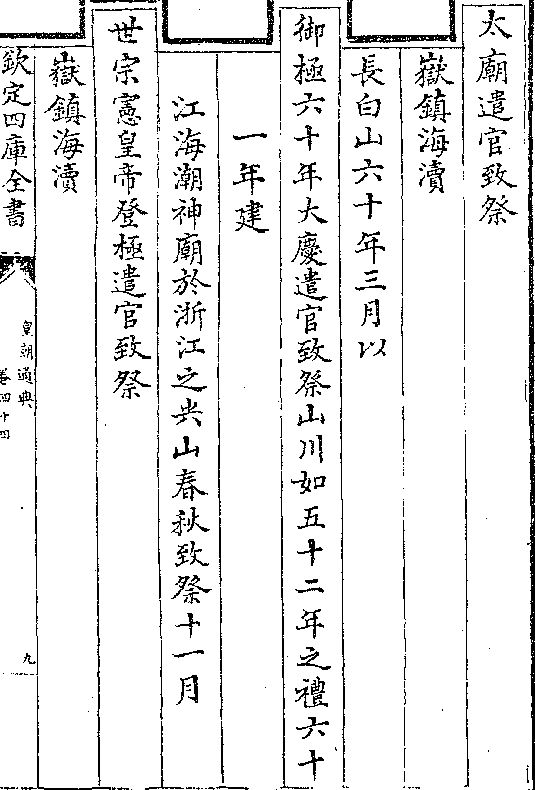 太廟遣官致祭
嶽鎮海瀆
長白山六十年三月以
御極六十年大慶遣官致祭山川如五十二年之禮六十
一年建
江海潮神廟於浙江之尖山春秋致祭十一月
世宗憲皇帝登極遣官致祭
嶽鎮海瀆
欽定四庫全書
皇朝通典
卷四十四
九